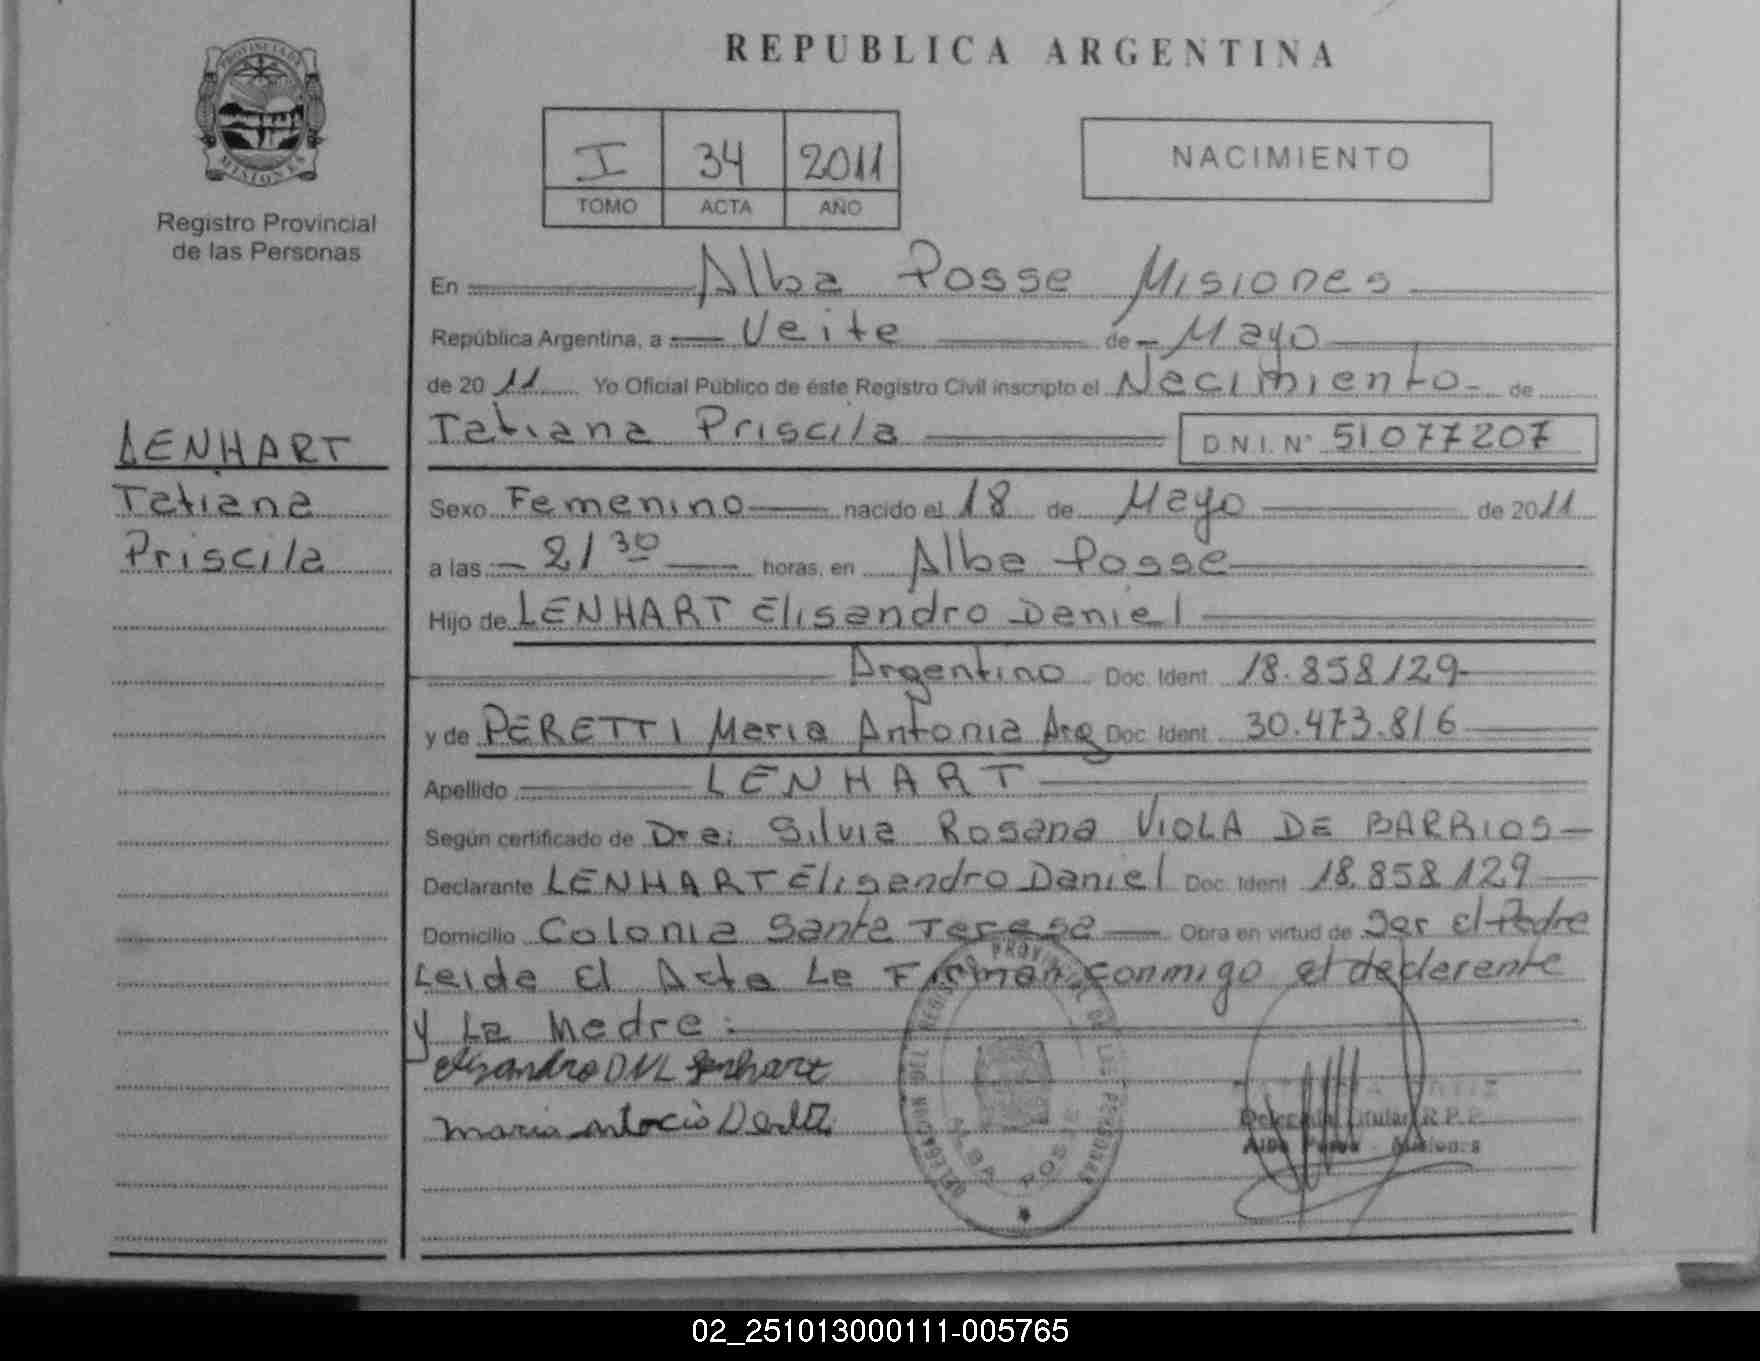 REPUBLICA ARGENTINA
PROVINCIA DE
MISIONES
Registro Provincial
de las Personas
I 34 2011
TOMO ACTA AÑO
NACIMIENTO
En Alba Posse Misiones
República Argentina, a Veite de Mayo
de 2011 Yo Oficial Público de éste Registro Civil inscripto el Nacimiento de
Tatiana Priscila D.N.I. N° 51077207
LENHART
Tatiana
Priscila
Sexo Femenino nacido el 18 de Mayo de 2011
a las 21 30 horas, en Alba Posse
Hijo de LENHART Elisandro Daniel
Argentino Doc. Ident. 18.858129
y de PERETTI Maria Antonia Arg Doc. Ident. 30.473.816
Apellido LENHART
Según certificado de Dra: Silvia Rosana VIOLA DE BARRIOS
Declarante LENHART Elisandro Daniel Doc. Ident. 18.858.129
Domicilio Colonia Santa Teresa Obra en virtud de Ser el Padre
Leida El Acta Le Firman conmigo el declarente
y La Madre:
DELEGACION DEL REGISTRO PROVINCIAL DE LAS PERSONAS
ALBA POSSE
Elisandro DNL Lenhart
Delegada Titular R.P.P.
Alba Posse - Misiones
02_251013000111-005765